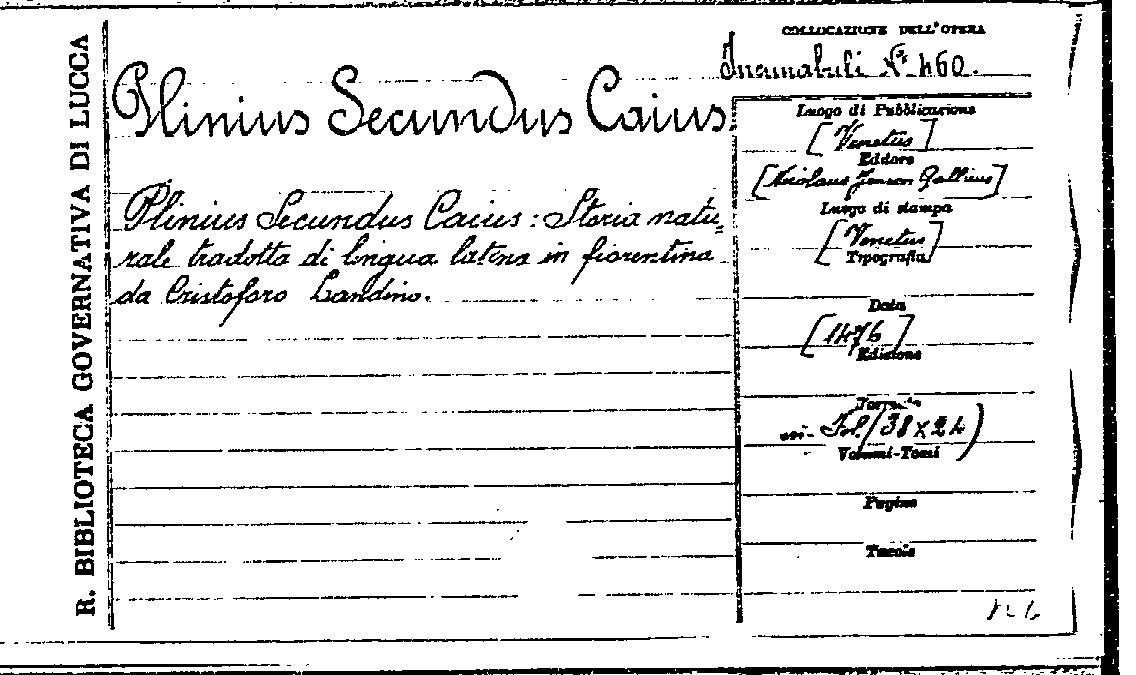 R. BIBLIOTECA GOVERNATIVA DI LUCCA
COLLOCAZIONE DELL'OPERA
Incunabuli N.º 460.
Plinius Secundus Caius.
Plinius Secundus Caius: Storia natu=
rale tradotta di lingua latina in fiorentina
da Cristoforo Landino.
Luogo di Pubblicazione
[Venetiis]
Editore
[Nicolaus Jenson Gallicus]
Luogo di stampa
[Venetiis]
Tipografia
Data
[1476]
Edizione
Formato
Fol. (38 x 24)
Volumi-Tomi
Pagine
Tavole